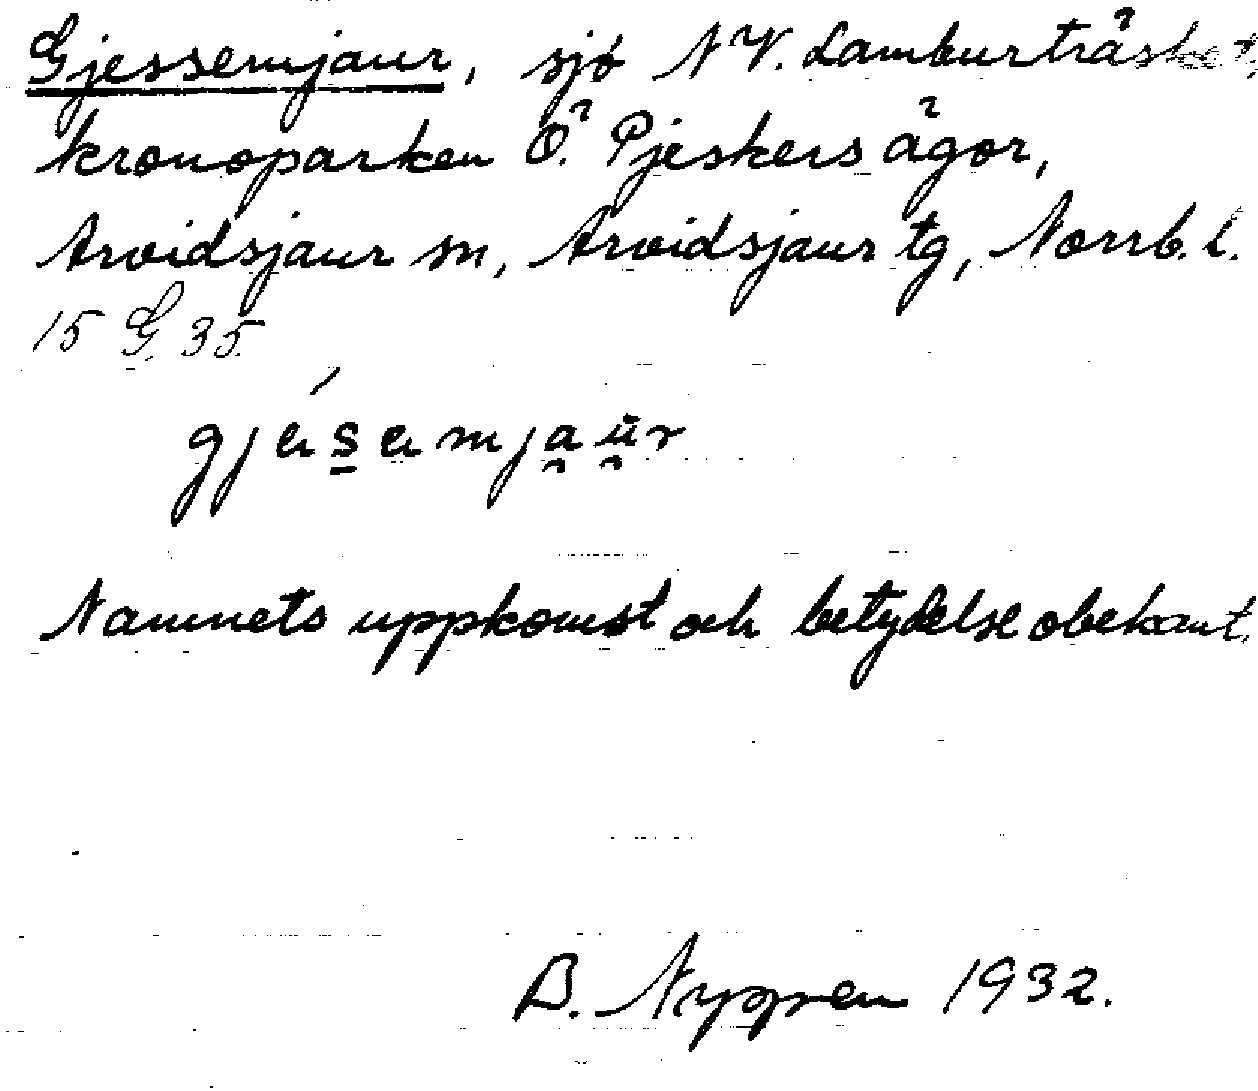 Gjessemjaur, sjö NV. Lamburträsket,
kronoparken Ö. Pjeskers ägor,
Arvidsjaur sn, Arvidsjaur tg, Norrb. l.
15 G. 35.
Namnets uppkomst och betydelse obekant.
B. Nygren 1932.